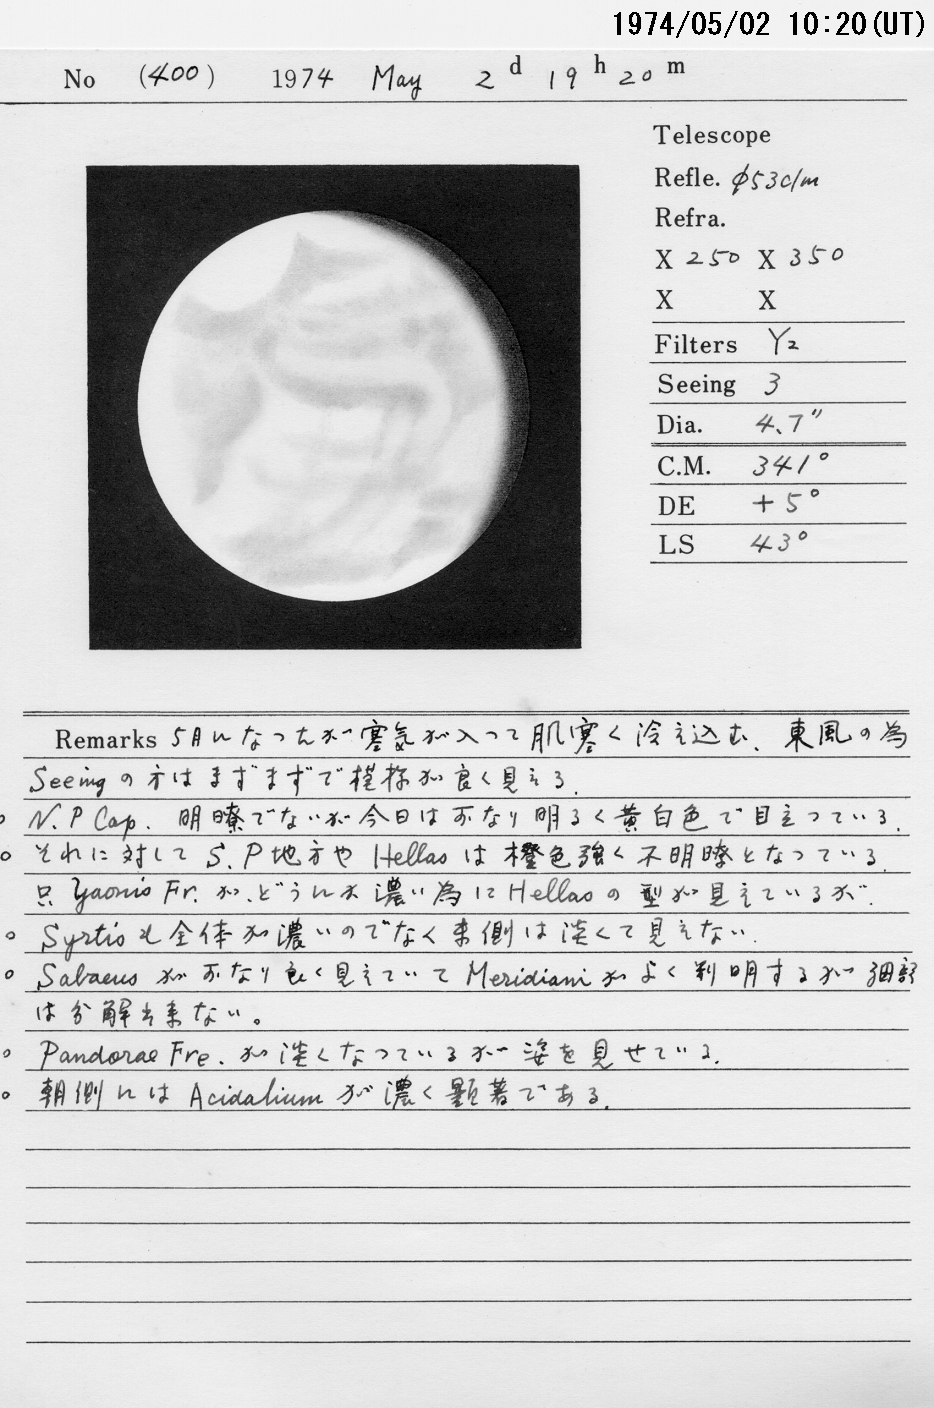 1974/05/02 10:20(UT)
No (400) 1974 May 2 d 19 h 20 m
Telescope
Refle. φ53c/m
Refra.
X 250 X 350
X X
Filters Y2
Seeing 3
Dia. 4.7"
C.M. 341°
DE +5°
LS 43°
Remarks 5月になったが寒気が入って肌寒く冷え込む、東風の為
Seeingの方はまずまずで模様が良く見える.
○ N.P Cap. 明瞭でないが今日はかなり明るく黄白色で目立っている.
○ それに対して S.P地方や Hellasは橙色強く不明瞭となっている
只 Yaonis Fr. が、どうにか濃い為にHellasの型が見えているが.
○ Syrtisも全体が濃いのでなく東側は淡くて見えない.
○ Sabaeus がかなり良く見えていて Meridianiがよく判明するが細部
は分解出来ない。
○ Pandorae Fre. が淡くなっているが姿を見せている.
○ 朝側には Acidalium が濃く顕著である.